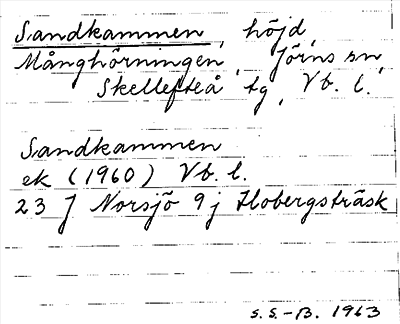 Sandkammen, höjd,
Månghörningen, Jörns sn,
Skellefteå tg, Vb. l.
Sandkammen
ek (1960) Vb. l.
23 J Norsjö 9 j Flobergsträsk
S.S.-B. 1963